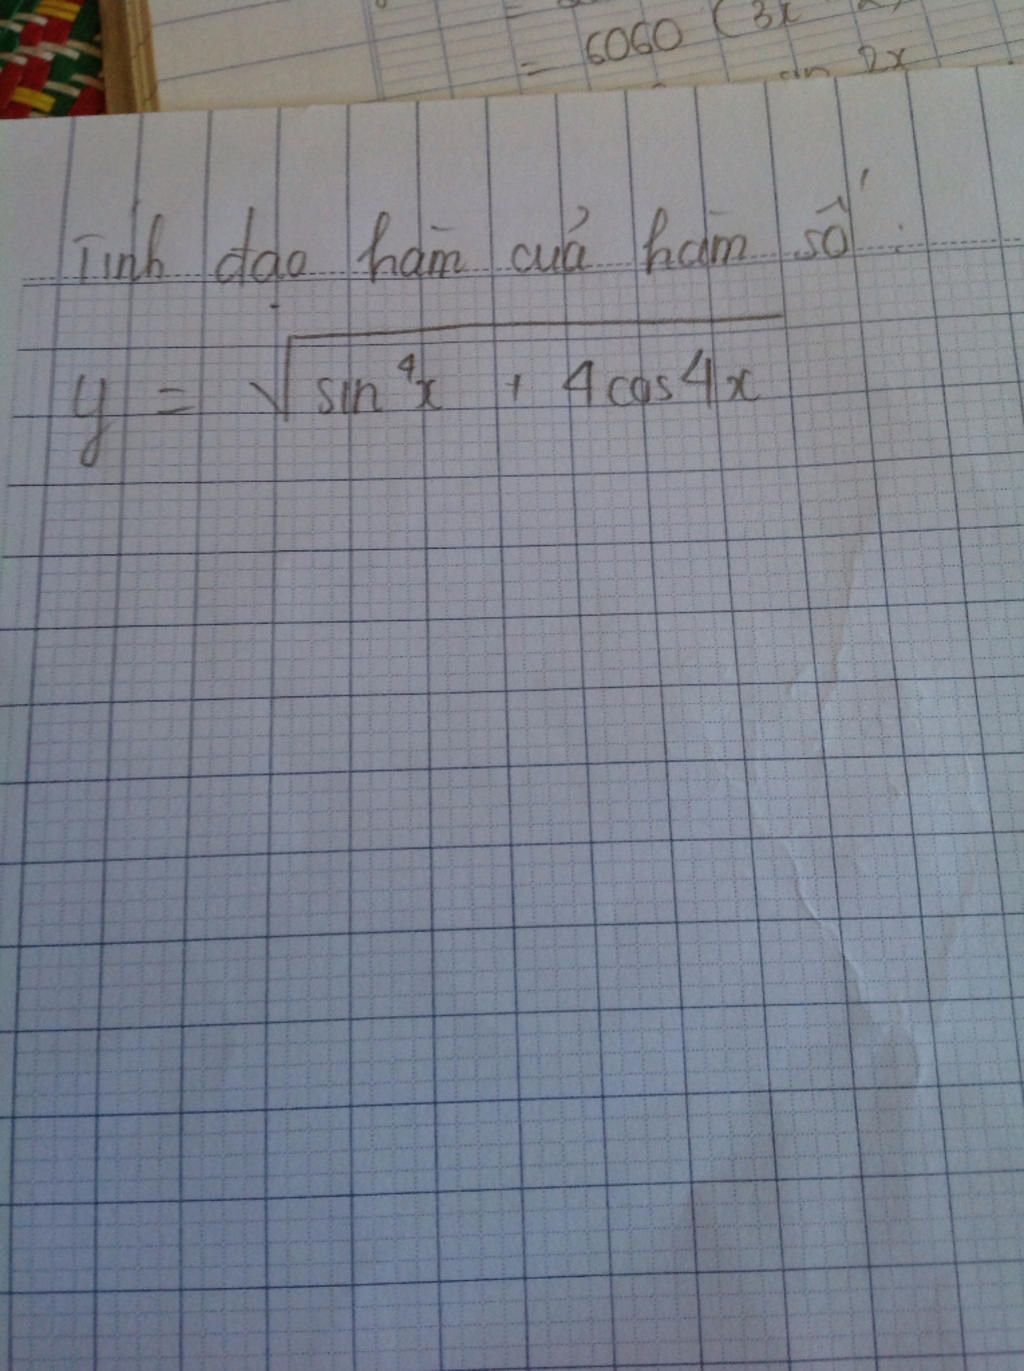 = 6060 (3x
2x
Tính đạo hàm của hàm số :
y = √(sin⁴x + 4cos4x)